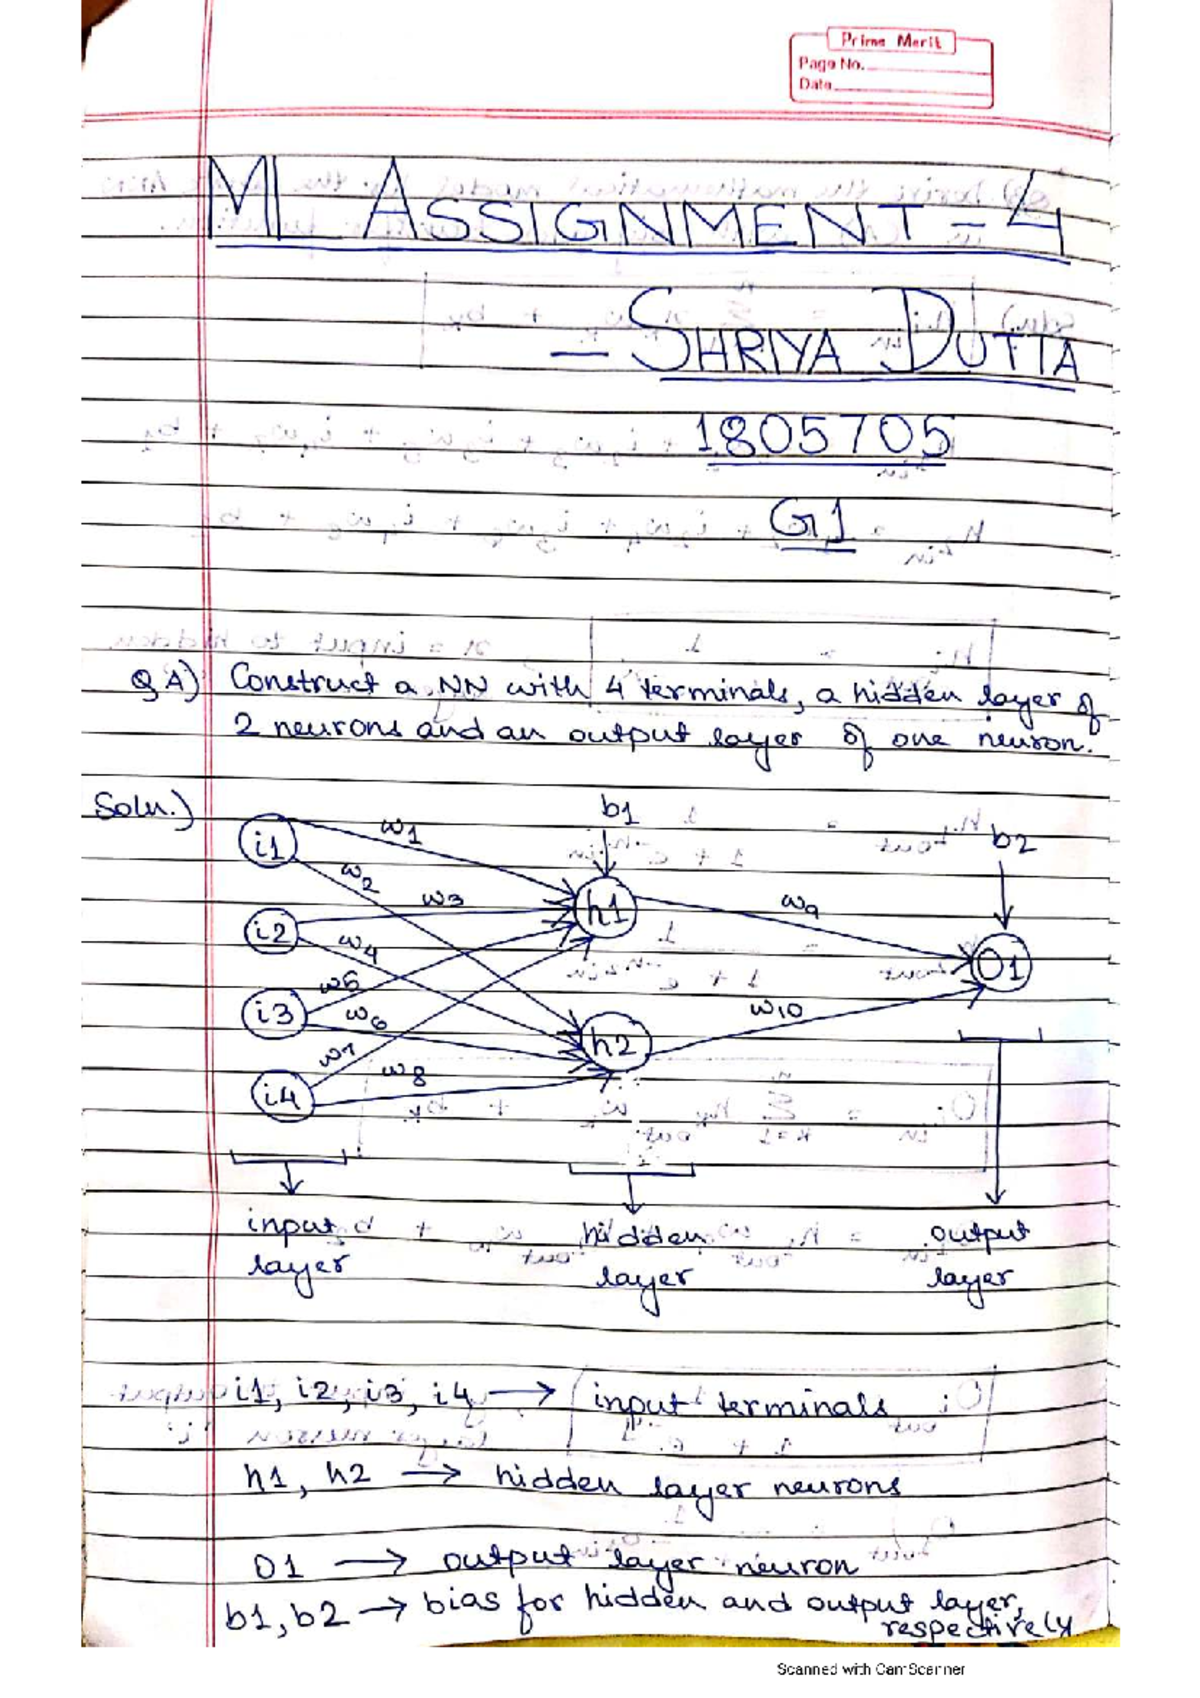 Prime Merit
Page No.
Date
ML ASSIGNMENT - 4
- SHRIYA DUTTA
1805705
G1
Q A) Construct a NN with 4 terminals, a hidden layer of
2 neurons and an output layer of one neuron.
Soln.)
b1
b2
i1
w1
w2
w3
h1
w9
i2
w4
O1
w5
i3
w6
w10
h2
w7
w8
i4
input
layer
hidden
layer
output
layer
i1, i2, i3, i4 → input terminals
h1, h2 → hidden layer neurons
O1 → output layer neuron
b1, b2 → bias for hidden and output layer,
respectively
Scanned with CamScanner